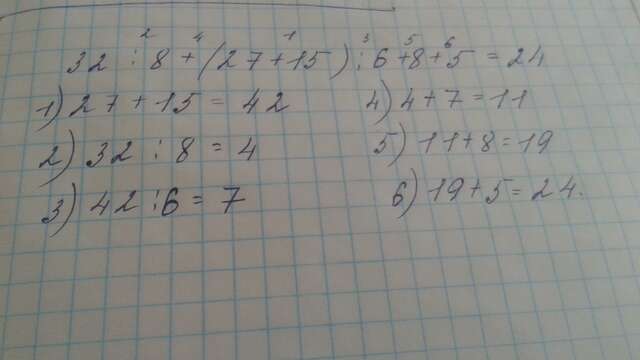 2 4 1 3 5 6
32 : 8 + (27+15) : 6+8+5 = 24
1) 27 + 15 = 42
2) 32 : 8 = 4
3) 42 : 6 = 7
4) 4+7=11
5) 11+8=19
6) 19+5=24.